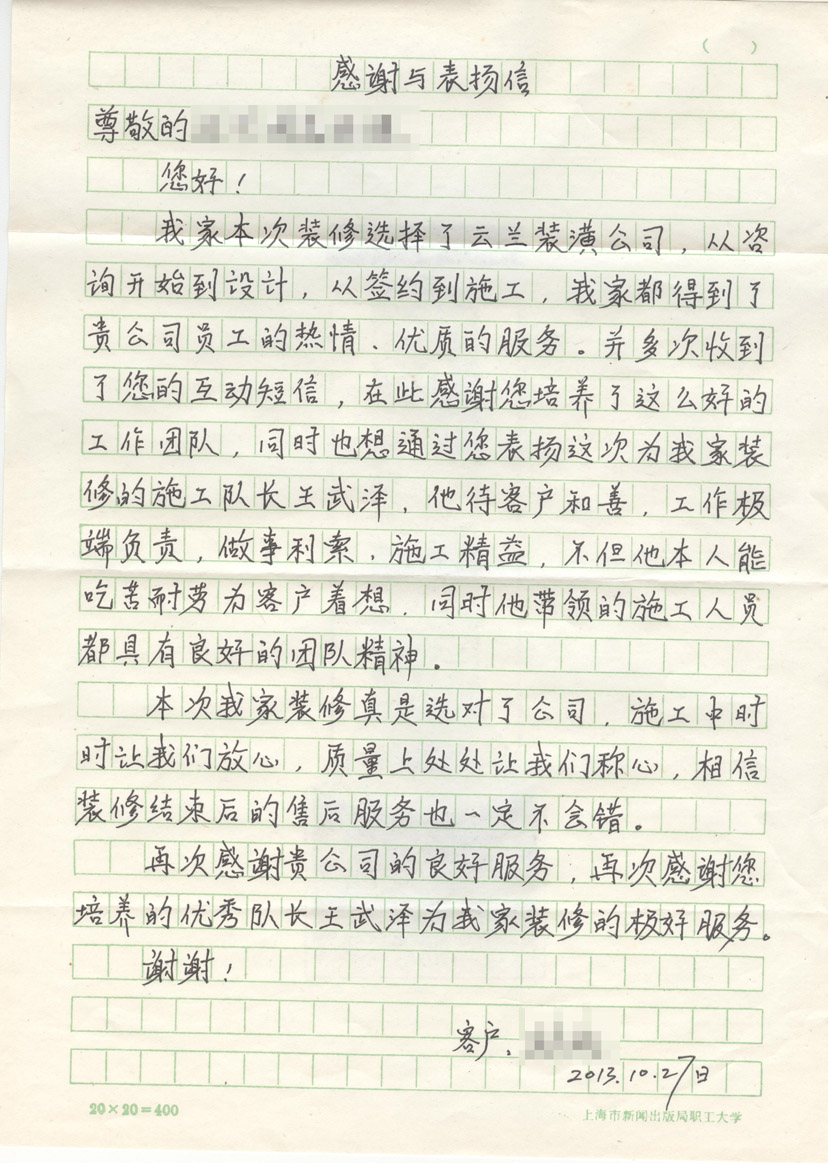 （ ）
感谢与表扬信
尊敬的
您好！
我家本次装修选择了云兰装潢公司，从咨
询开始到设计，从签约到施工，我家都得到了
贵公司员工的热情、优质的服务。并多次收到
了您的互动短信，在此感谢您培养了这么好的
工作团队，同时也想通过您表扬这次为我家装
修的施工队长王武泽，他待客户和善，工作极
端负责，做事利索、施工精益，不但他本人能
吃苦耐劳为客户着想，同时他带领的施工人员
都具有良好的团队精神。
本次我家装修真是选对了公司，施工中时
时让我们放心，质量上处处让我们称心，相信
装修结束后的售后服务也一定不会错。
再次感谢贵公司的良好服务，再次感谢您
培养的优秀队长王武泽为我家装修的极好服务。
谢谢！
客户：
2013.10.27日
20×20=400
上海市新闻出版局职工大学